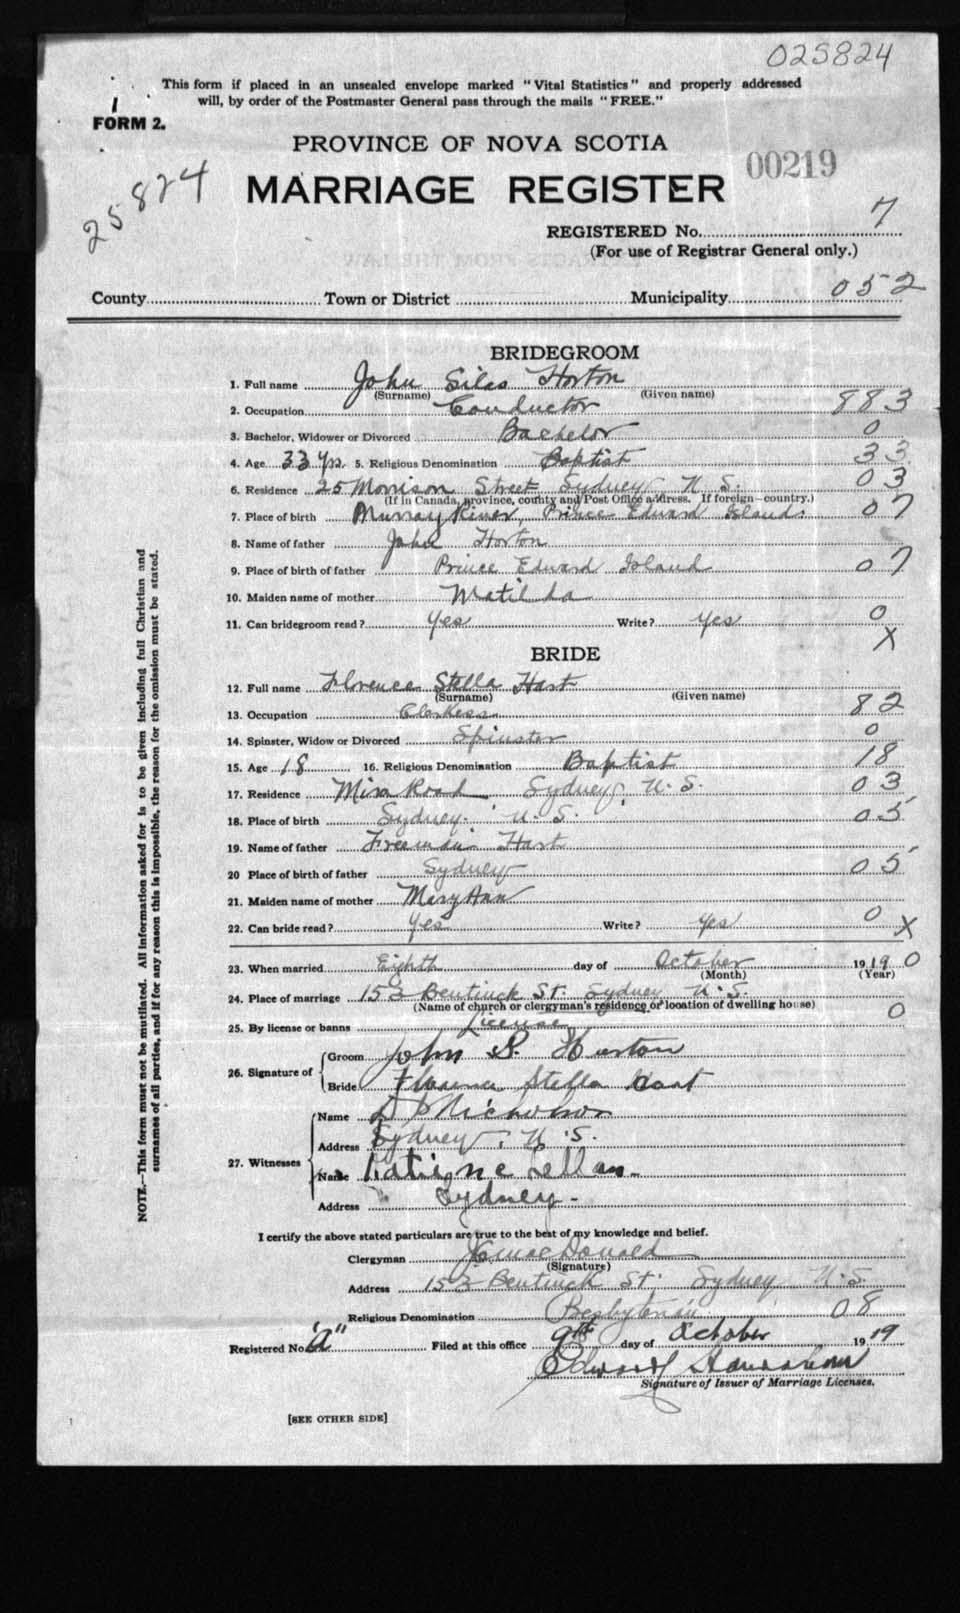 025824
This form if placed in an unsealed envelope marked "Vital Statistics" and properly addressed
will, by order of the Postmaster General pass through the mails "FREE."
1
FORM 2.
PROVINCE OF NOVA SCOTIA
00219
25824
MARRIAGE REGISTER
REGISTERED No. 7
(For use of Registrar General only.)
County Town or District Municipality 052
BRIDEGROOM
1. Full name John Silas Horton
(Surname) (Given name)
2. Occupation Conductor 883
3. Bachelor, Widower or Divorced Bachelor 0
4. Age 33 yrs. 5. Religious Denomination Baptist 33
6. Residence 25 Morrison Street Sydney N.S. 03
(If in Canada, province, county and Post Office address. If foreign—country.)
7. Place of birth Murray River, Prince Edward Island. 07
8. Name of father John Horton
9. Place of birth of father Prince Edward Island 07
10. Maiden name of mother Matilda
11. Can bridegroom read? Yes Write? Yes 0
X
BRIDE
12. Full name Florence Stella Hart
(Surname) (Given name)
13. Occupation Clerkess 82
14. Spinster, Widow or Divorced Spinster 0
15. Age 18 16. Religious Denomination Baptist 18
17. Residence Mira Road Sydney, N.S. 03
18. Place of birth Sydney. N.S. 05
19. Name of father Freeman Hart
20 Place of birth of father Sydney 05
21. Maiden name of mother Mary Ann
22. Can bride read? Yes Write? Yes 0
X
23. When married Eighth day of October 1919 0
(Month) (Year)
24. Place of marriage 153 Bentinck St. Sydney N.S.
(Name of church or clergyman's residence or location of dwelling house)
25. By license or banns License 0
26. Signature of
Groom John S. Horton
Bride Florence Stella Hart
27. Witnesses
Name Nicholson
Address Sydney, N.S.
Name
Address Sydney.
I certify the above stated particulars are true to the best of my knowledge and belief.
Clergyman MacDonald
(Signature)
Address 153 Bentinck St. Sydney N.S.
Religious Denomination Presbyterian 08
Registered No. "a" Filed at this office 9th day of October 1919
Edward
Signature of Issuer of Marriage Licenses.
[SEE OTHER SIDE]
NOTE.—This form must not be mutilated. All information asked for is to be given including full Christian and
surnames of all parties, and if for any reason this is impossible, the reason for the omission must be stated.